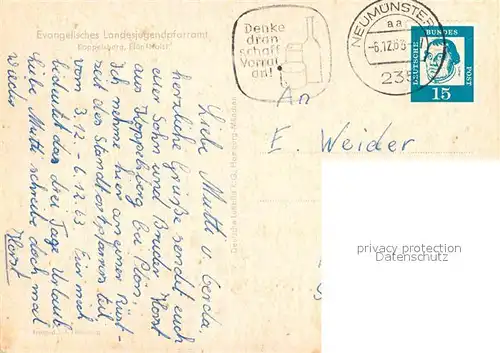 Evangelisches Landesjugendpfarramt
Koppelsberg, Plön/Holst.
Denke
dran
schaff
Vorrat
an!
NEUMÜNSTER
aa
-6.12.63
DEUTSCHE BUNDESPOST
15
An
E. Weider
Liebe Mutti u. Gerda,
herzliche Grüße sendet euch
euer Sohn und Bruder Horst
aus Koppelsberg bei Plön.
Ich nehme hier an einer Rüst-
zeit des Standortpfarrers teil
vom 3.12. - 6.12.63. Für mich
bedeutet das drei Tage Urlaub.
Liebe Mutti schreibe doch mal
wieder
Horst
privacy protection
Datenschutz